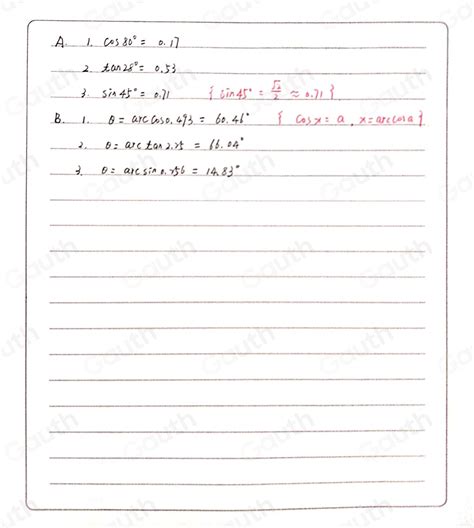 A. 1. cos 80° = 0.17
2. tan 28° = 0.53
3. sin 45° = 0.71 { sin 45° = √2/2 ≈ 0.71 }
B. 1. θ = arc cos 0.493 = 60.46° { cos x = a, x = arc cos a }
2. θ = arc tan 2.25 = 66.04°
3. θ = arc sin 0.256 = 14.83°
Gauth